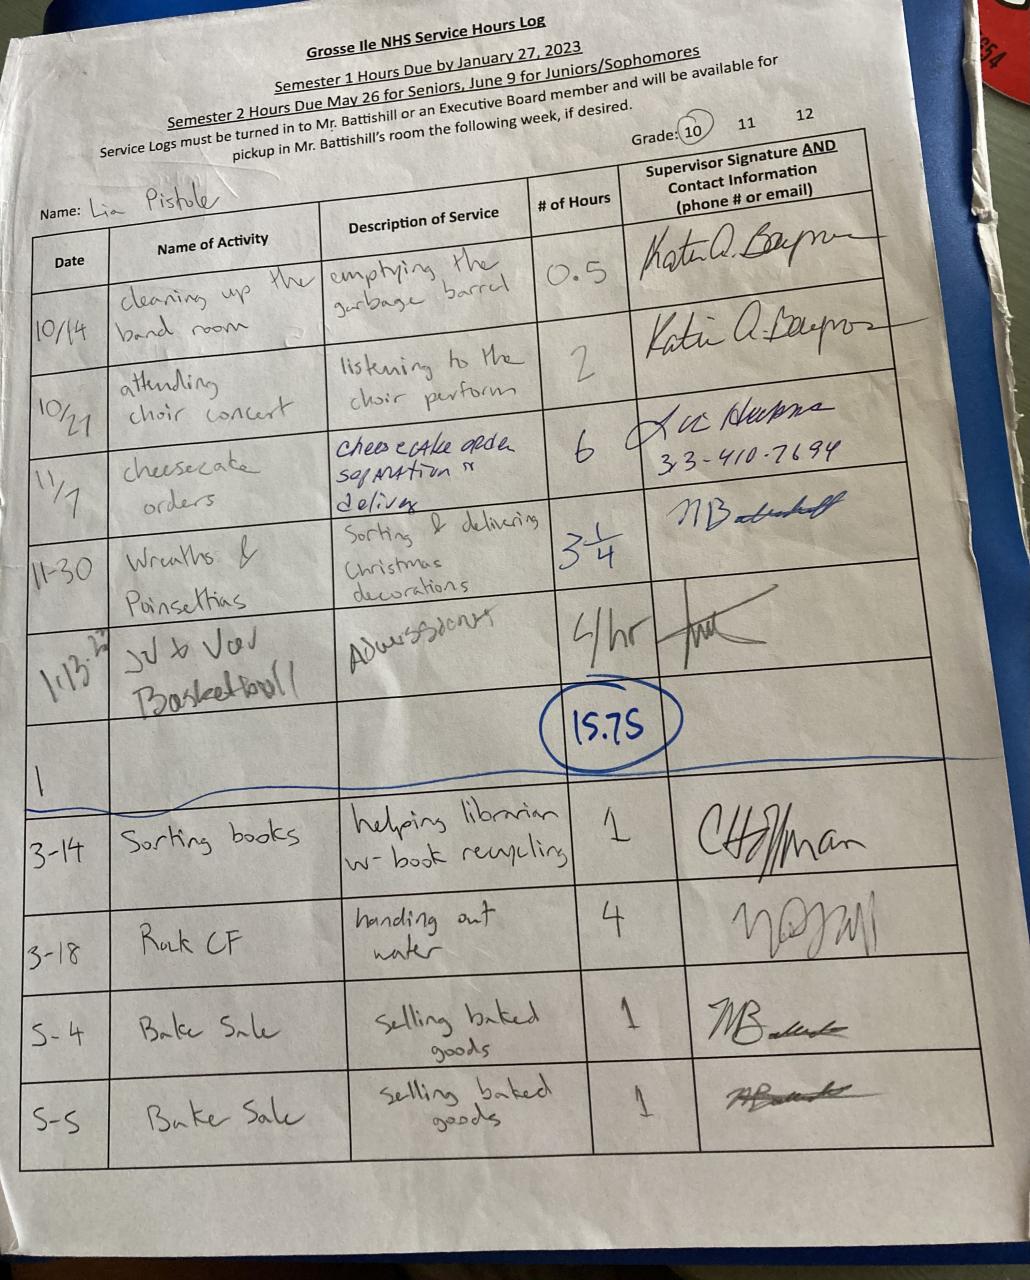 Grosse Ile NHS Service Hours Log
Semester 1 Hours Due by January 27, 2023
Semester 2 Hours Due May 26 for Seniors, June 9 for Juniors/Sophomores
Service Logs must be turned in to Mr. Battishill or an Executive Board member and will be available for
pickup in Mr. Battishill's room the following week, if desired.
Grade: 10 11 12
Name: Lia Pistole
Date
Name of Activity
Description of Service
# of Hours
Supervisor Signature AND
Contact Information
(phone # or email)
10/14
cleaning up the
band room
emptying the
garbage barrel
0.5
Katie A.
10/21
attending
choir concert
listening to the
choir perform
2
Katie A.
11/7
cheesecake
orders
cheesecake order
separation &
delivery
6
313-410-7694
11-30
Wreaths &
Poinsettias
Sorting & delivering
Christmas
decorations
3 1/4
1.13.23
JV & Var
Basketball
Admissions
4/hr
15.75
1
3-14
Sorting books
helping librarian
w- book recycling
1
CHoffman
3-18
Ruck CF
handing out
water
4
5-4
Bake Sale
selling baked
goods
1
5-5
Bake Sale
selling baked
goods
1
654